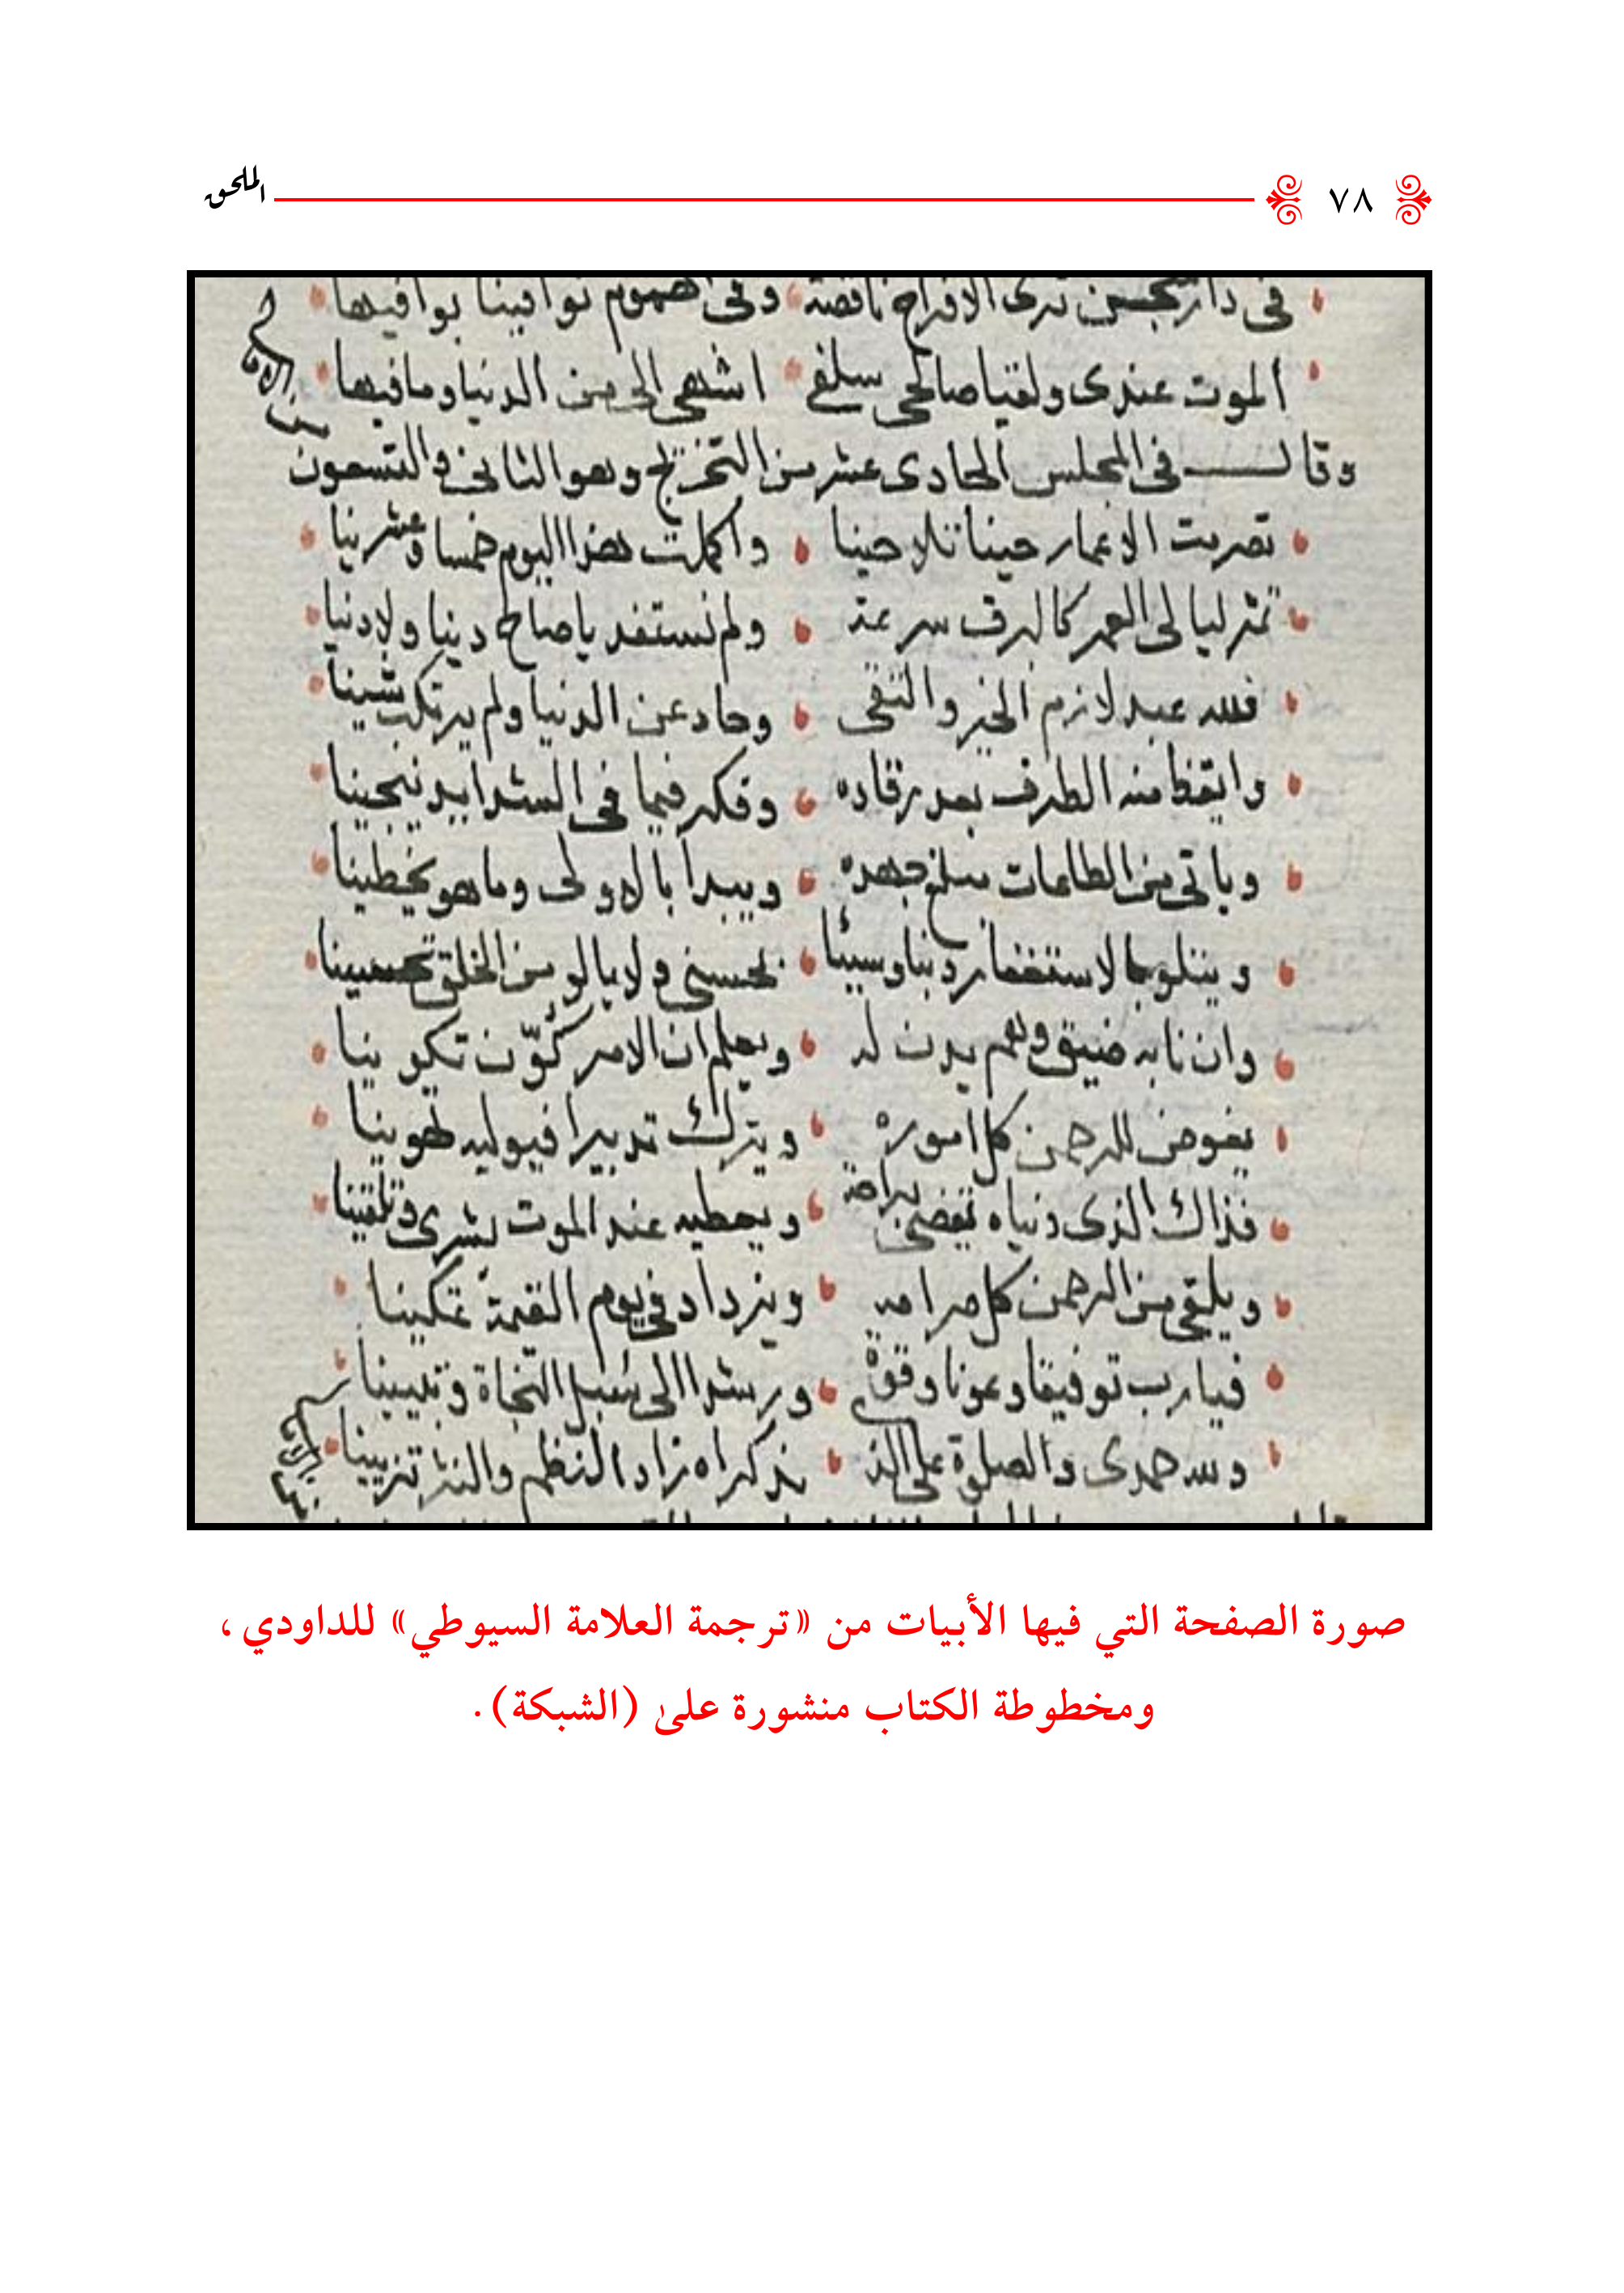 ٧٨ الملحق
في دار تحسن ترى الافراح ناقصة وفي هموم توافينا بوافيها
الموت عندى ولقيا صالحى سلفى اشهى الى من الدنيا وما فيها
وقال في المجلس الحادى عشر من التخريج وهو الثانى والتسعون
تصرمت الاعمار حينا تلا حينا واكملت هذا اليوم خمسا وعشرينا
تمر ليالى العمر كالبرق سرعة ولم نستفد يا صاح دينا ولا دنيا
فلله عبد لازم الخير والتقى وحاد عن الدنيا ولم يرتكب شينا
وايقظ منه الطرف بعد رقاده وفكر فيما في الشدايد ينجينا
وياتى من الطاعات مبلغ جهده ويبدا بالاولى وما هو يخطينا
ويتلو بالاستغفار ذنبا وسيئا بحسنى ولا يالو من الخلق تحسينا
وان نابه ضيق وهم يدن له ويعلم ان الامر كُوّن تكوينا
يفوض للرحمن كل اموره ويترك تدبيرا فيوليه تهوينا
فذاك الذى دنياه تقضى براحة ويعطيه عند الموت بشرى وتلقينا
ويلقى من الرحمن كل مرامه ويزداد في يوم القيمة تمكينا
فيا رب توفيقا وعونا وقوة ورشدا الى سُبل النجاة وتبيينا
ولله حمدى والصلوة على الذى بذكراه زاد النظم والنثر تزيينا
صورة الصفحة التي فيها الأبيات من «ترجمة العلامة السيوطي» للداودي،
ومخطوطة الكتاب منشورة علىٰ (الشبكة).